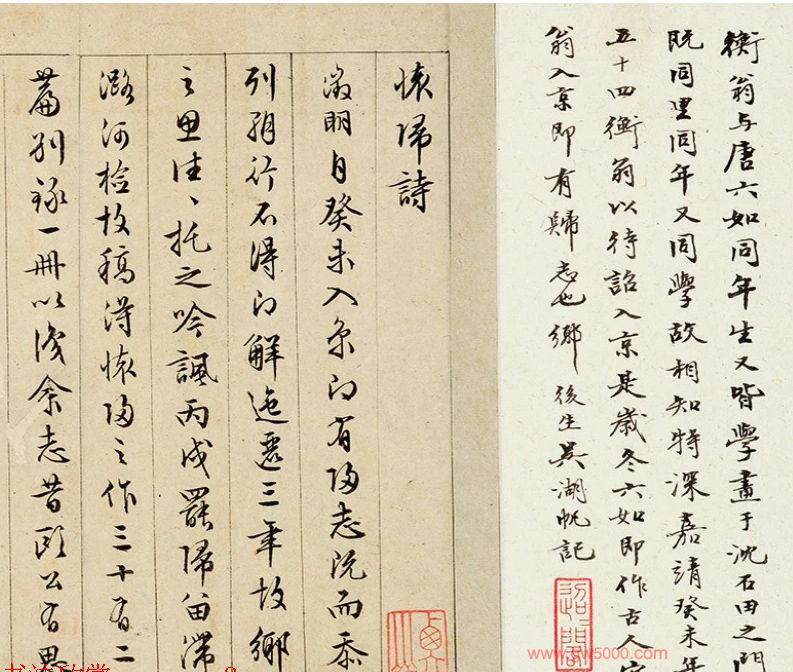 衡翁与唐六如同年生又皆學畫于沈石田之門
既同里同年又同學故相知特深嘉靖癸未年
五十四衡翁以待詔入京是歲冬六如即作古人
翁入京即有歸志也鄉後生吴湖帆記
懷歸詩
徵明自癸未入京即有歸志既而忝
列朝行不得即解迤邐三年故鄉
之思往、托之吟諷丙戌罷歸留滯
潞河檢故稿得懷歸之作三十有二
篇別錄一冊以識余志昔歐公有思
www.sw5000.com